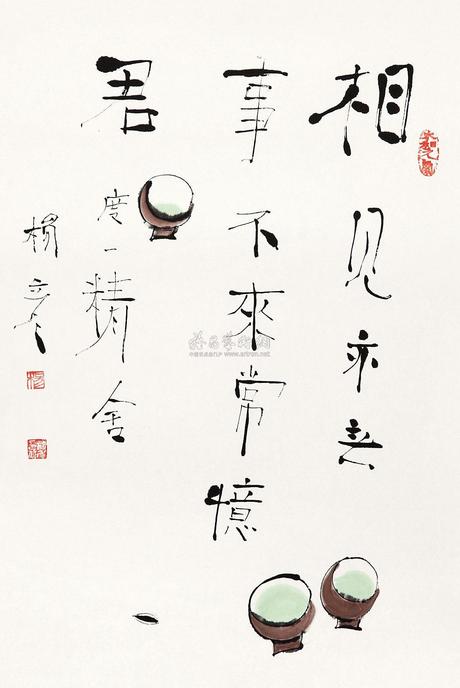 相见亦無
事不來常憶
君
度一精舍
楊彦
雅昌艺术网
www.artron.net